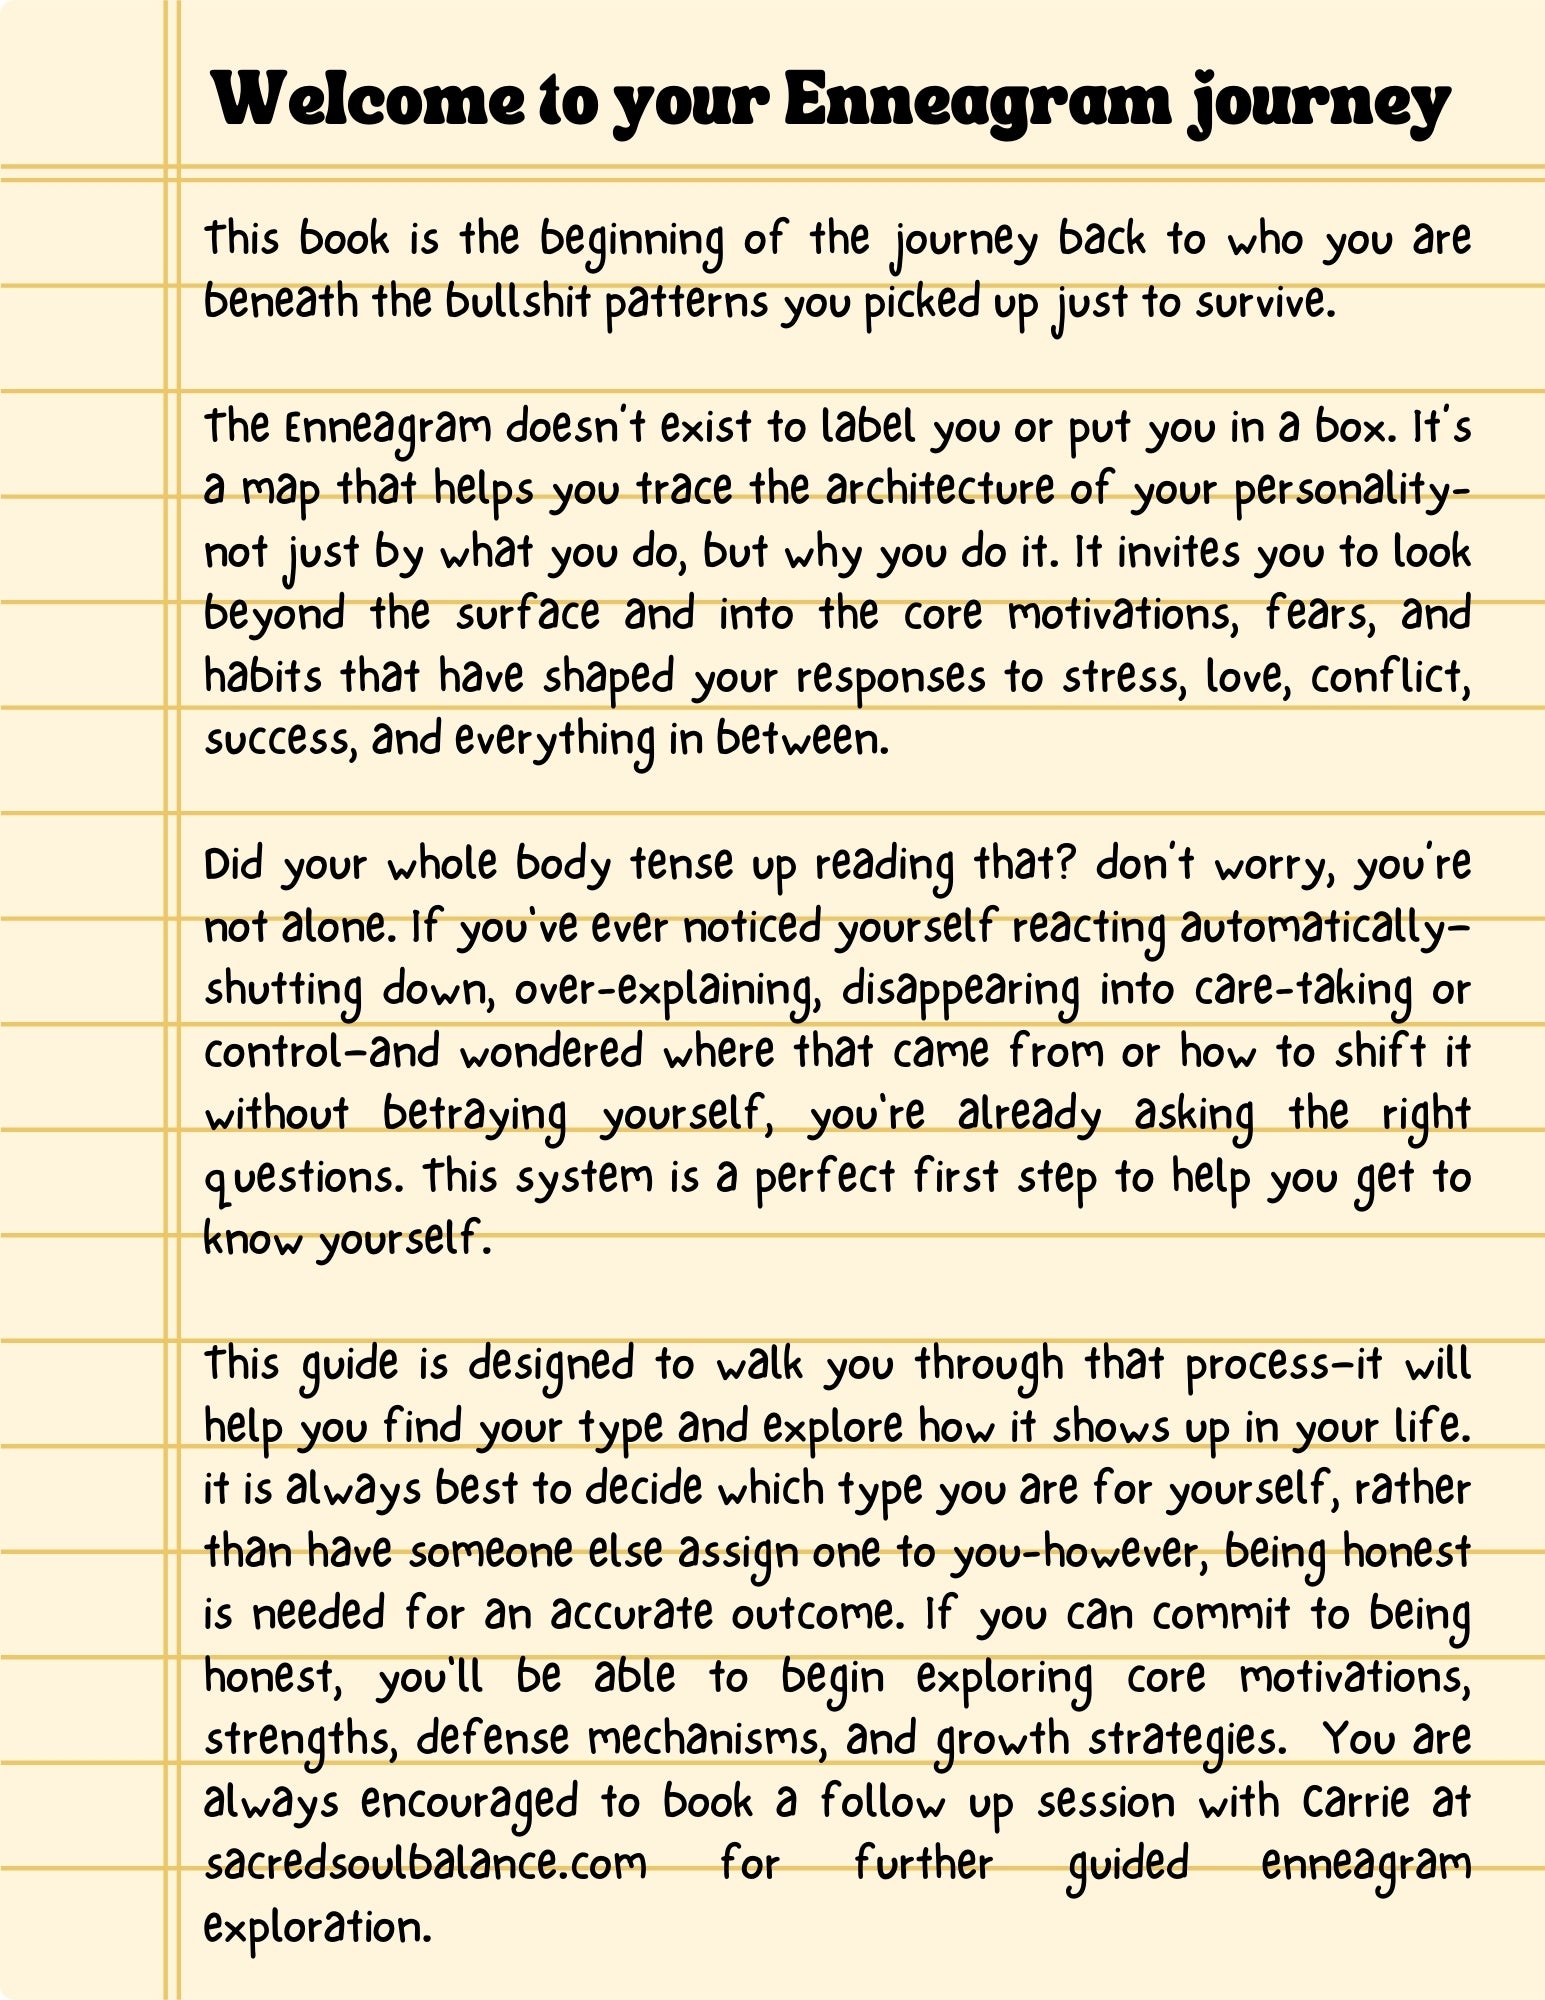 Welcome to your Enneagram journey
This book is the beginning of the journey back to who you are
beneath the bullshit patterns you picked up just to survive.
The Enneagram doesn't exist to label you or put you in a box. It's
a map that helps you trace the architecture of your personality-
not just by what you do, but why you do it. It invites you to look
beyond the surface and into the core motivations, fears, and
habits that have shaped your responses to stress, love, conflict,
success, and everything in between.
Did your whole body tense up reading that? don't worry, you're
not alone. If you've ever noticed yourself reacting automatically—
shutting down, over-explaining, disappearing into care-taking or
control—and wondered where that came from or how to shift it
without betraying yourself, you're already asking the right
questions. This system is a perfect first step to help you get to
know yourself.
This guide is designed to walk you through that process—it will
help you find your type and explore how it shows up in your life.
it is always best to decide which type you are for yourself, rather
than have someone else assign one to you-however, being honest
is needed for an accurate outcome. If you can commit to being
honest, you'll be able to begin exploring core motivations,
strengths, defense mechanisms, and growth strategies.  You are
always encouraged to book a follow up session with Carrie at
sacredsoulbalance.com for further guided enneagram
exploration.